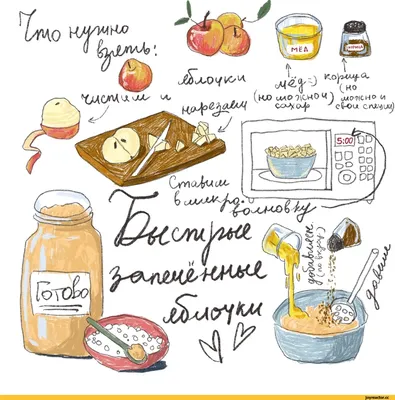 Что нужно
взять:
яблочки
МЁД
мёд =)
(но можно и
сахар
корица
(но
можно и
свои специи)
чистим и
нарезаем
5:00
Ставим
в микро-
волновку
Быстрые
запечённые
яблочки
Готово
добавляем
(по вкусу)
давим
joyreactor.cc